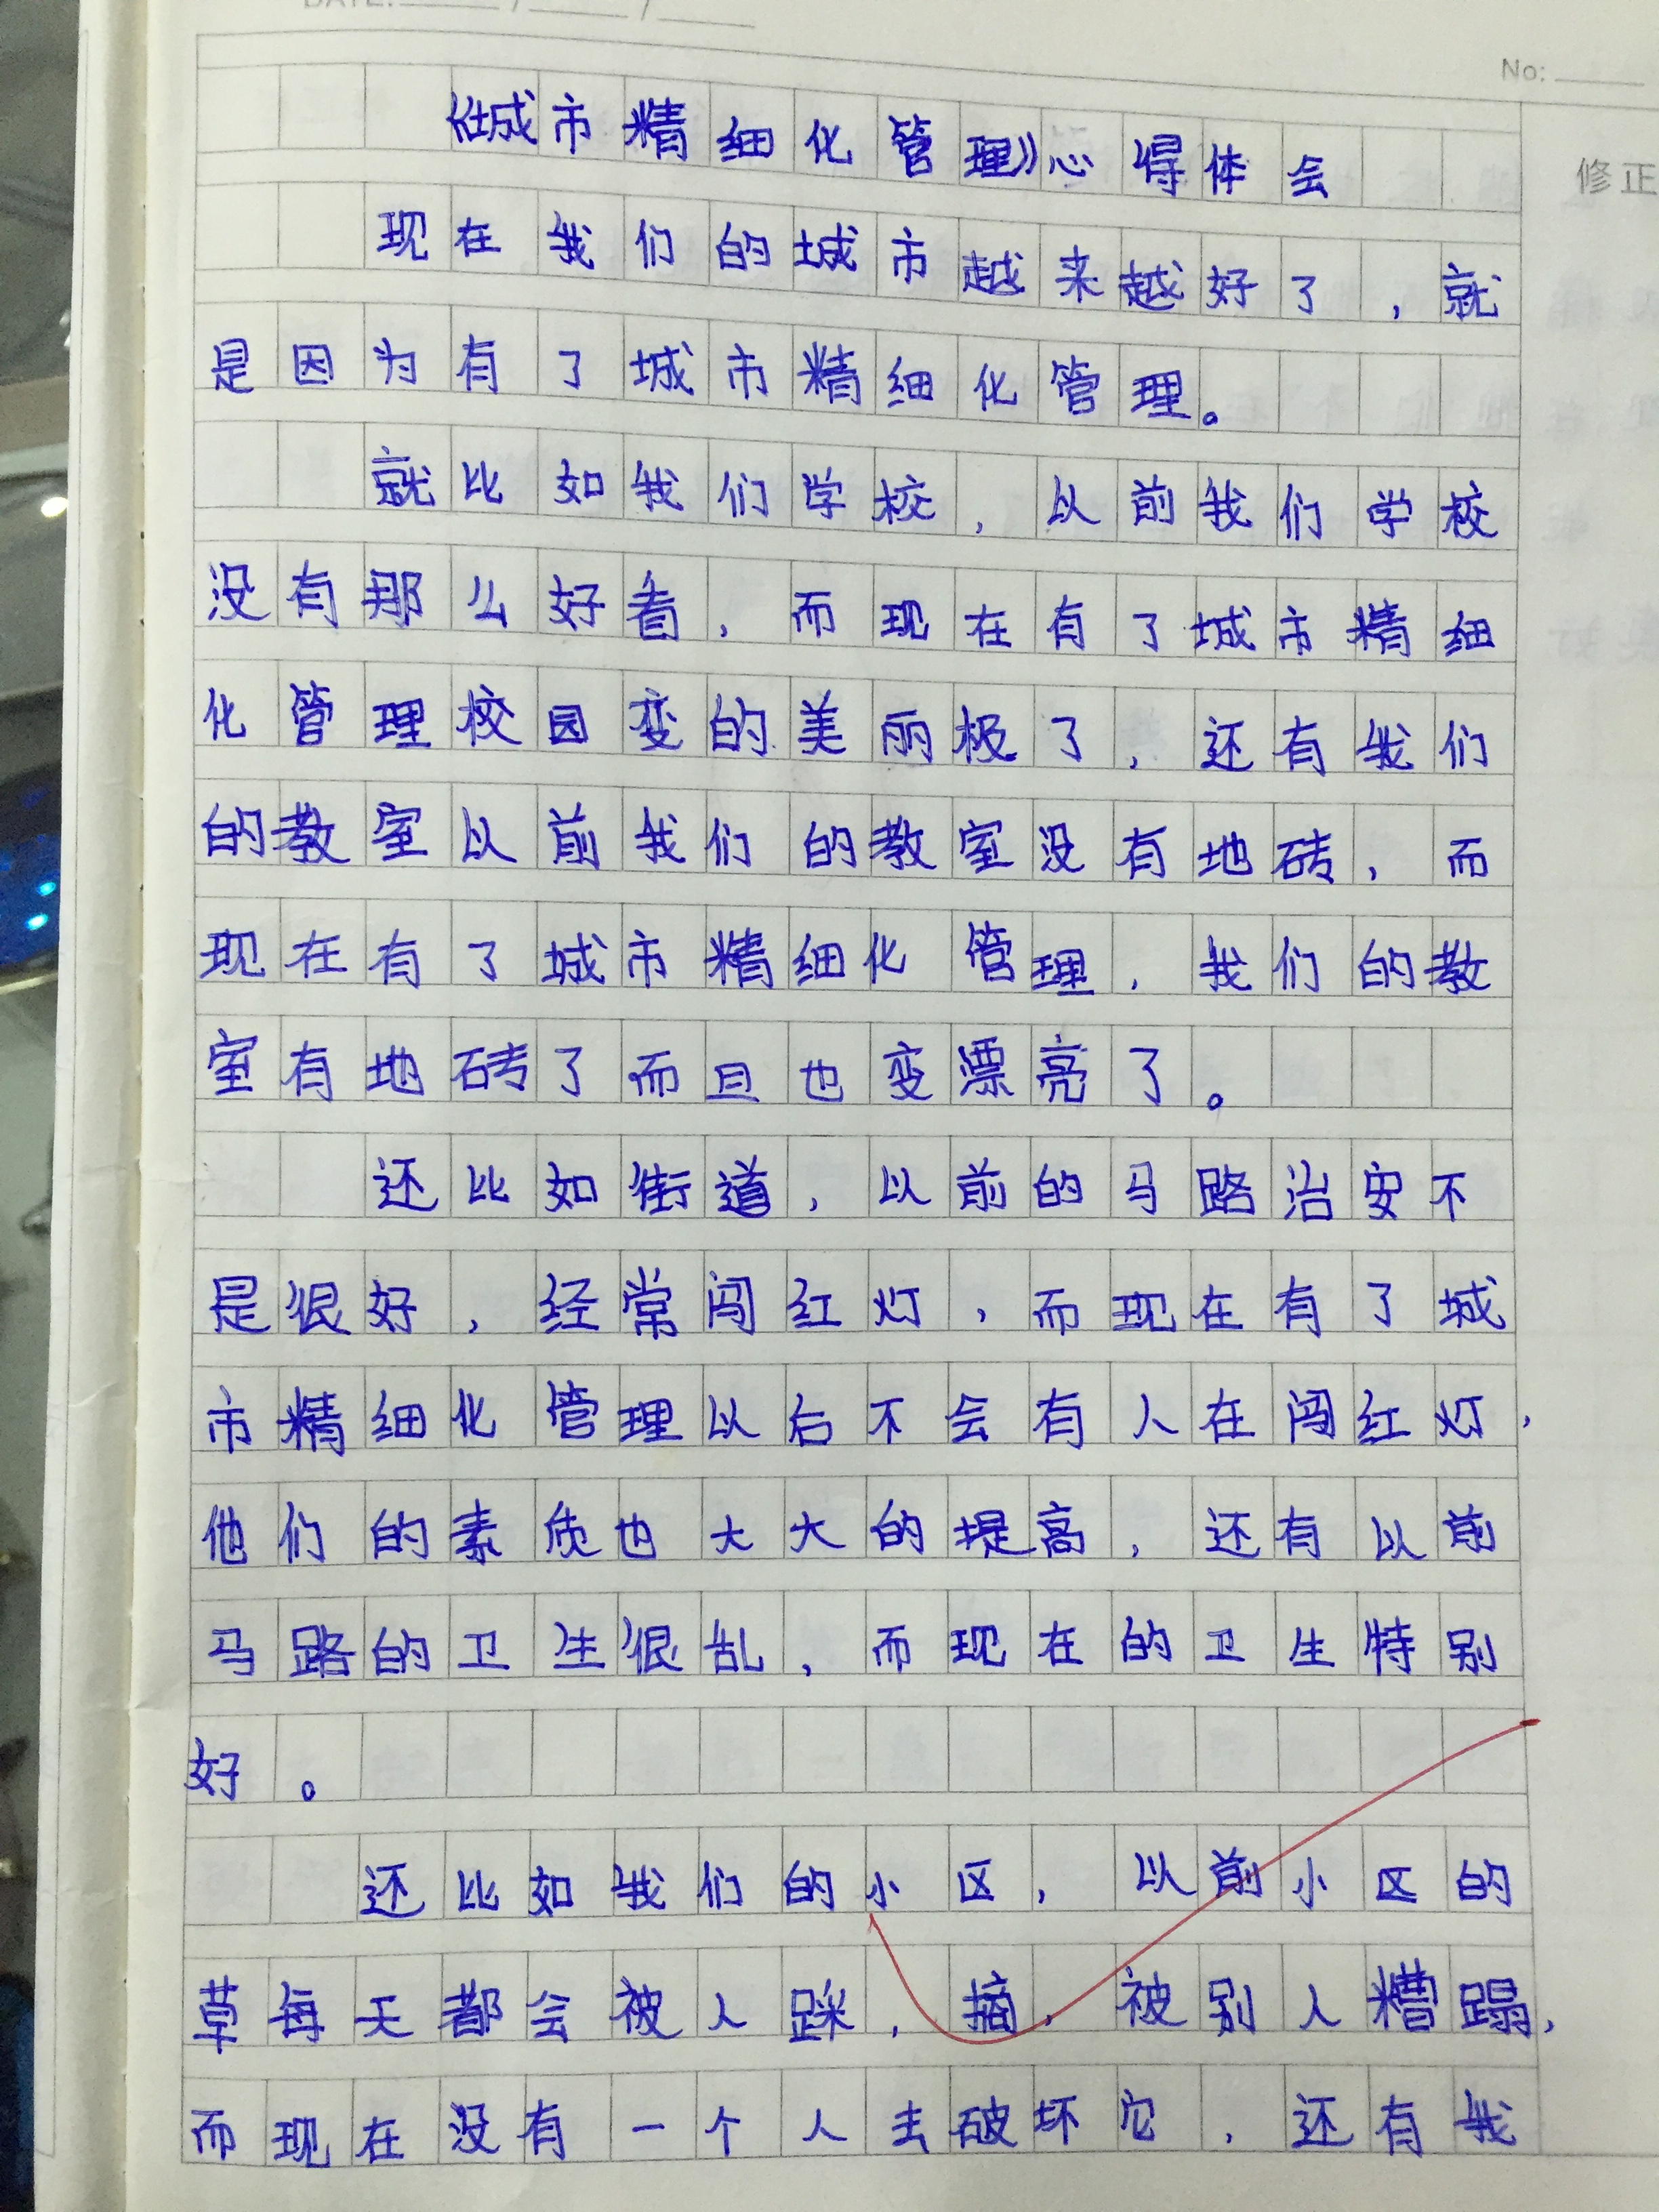 DATE: / /
No:
修正
《城市精细化管理》心得体会
现在我们的城市越来越好了，就
是因为有了城市精细化管理。
就比如我们学校，以前我们学校
没有那么好看，而现在有了城市精细
化管理校园变的美丽极了，还有我们
的教室以前我们的教室没有地砖，而
现在有了城市精细化管理，我们的教
室有地砖了而且也变漂亮了。
还比如街道，以前的马路治安不
是很好，经常闯红灯，而现在有了城
市精细化管理以后不会有人在闯红灯，
他们的素质也大大的提高，还有以前
马路的卫生很乱，而现在的卫生特别
好。
还比如我们的小区，以前小区的
草每天都会被人踩，摘，被别人糟蹋，
而现在没有一个人去破坏它，还有我